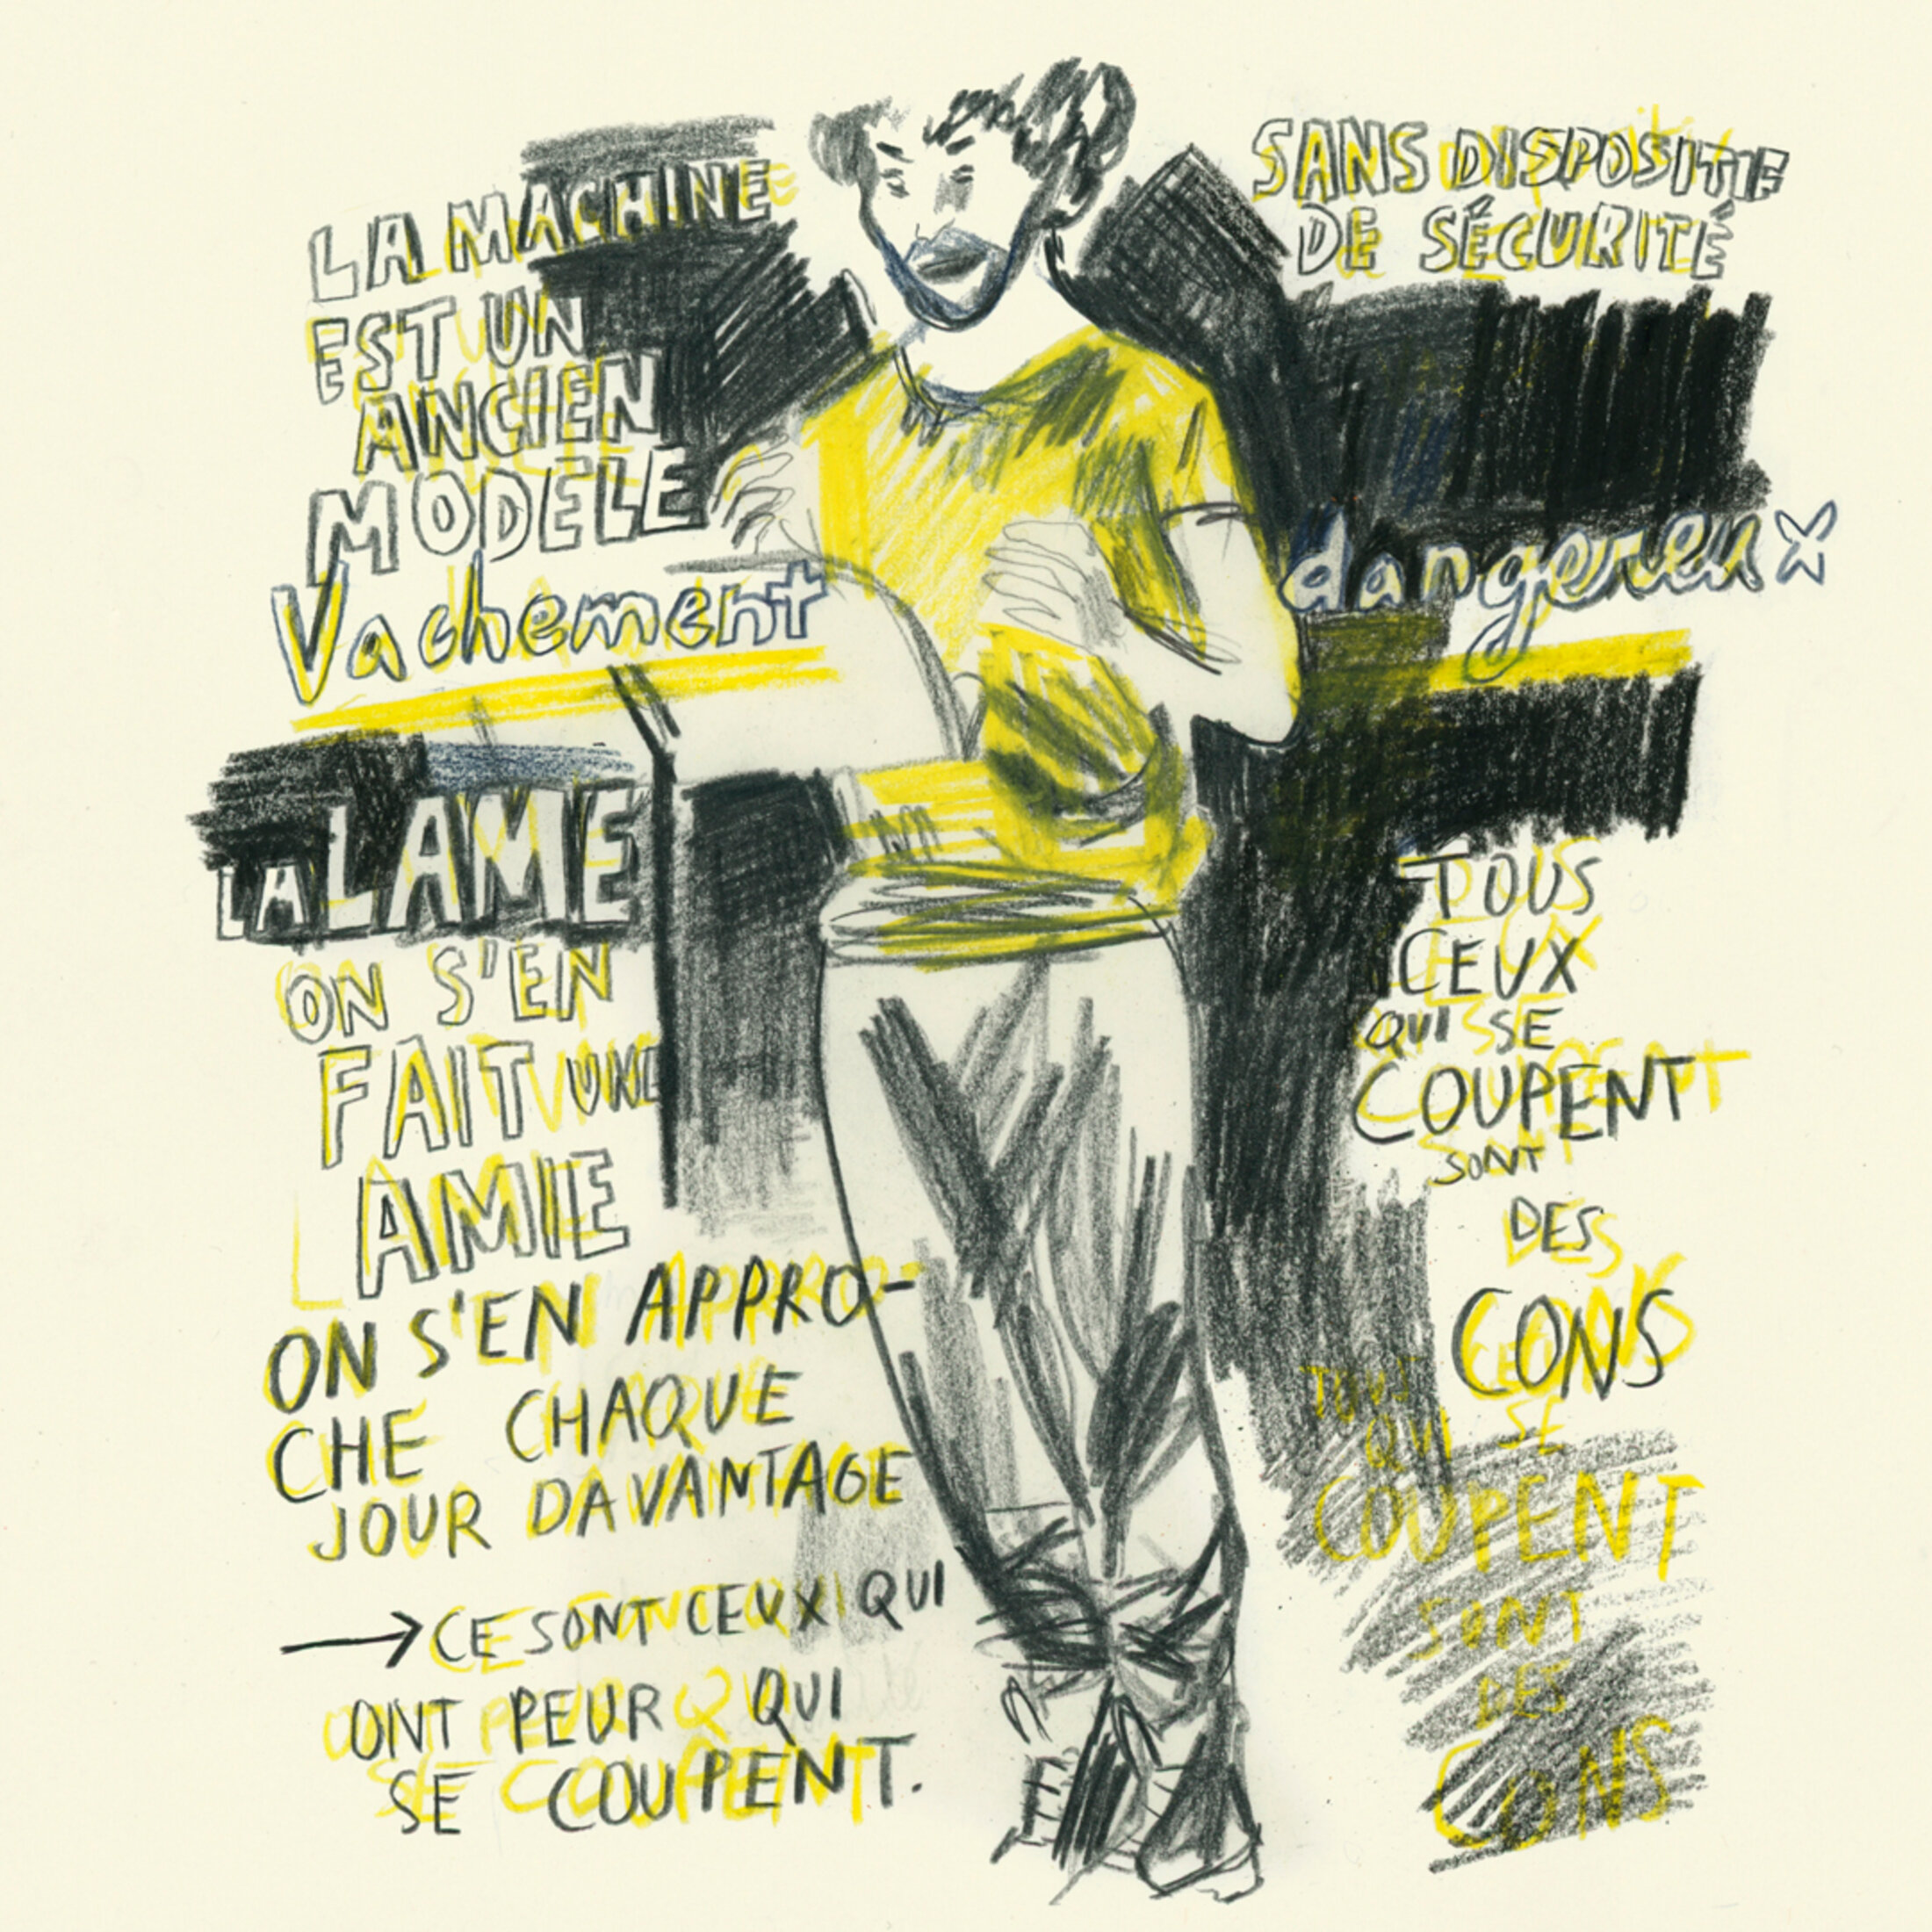 LA MACHINE
EST UN
ANCIEN
MODÈLE
SANS DISPOSITIF
DE SÉCURITÉ
Vachement
dangereux
LA LAME
ON S'EN
FAIT UNE
AMIE
ON S'EN APPRO-
CHE CHAQUE
JOUR DAVANTAGE
→ CE SONT CEUX QUI
ONT PEUR QUI
SE COUPENT.
TOUS
CEUX
QUI SE
COUPENT
SONT
DES
CONS
TOUS CEUX
QUI SE
COUPENT
SONT
DES
CONS